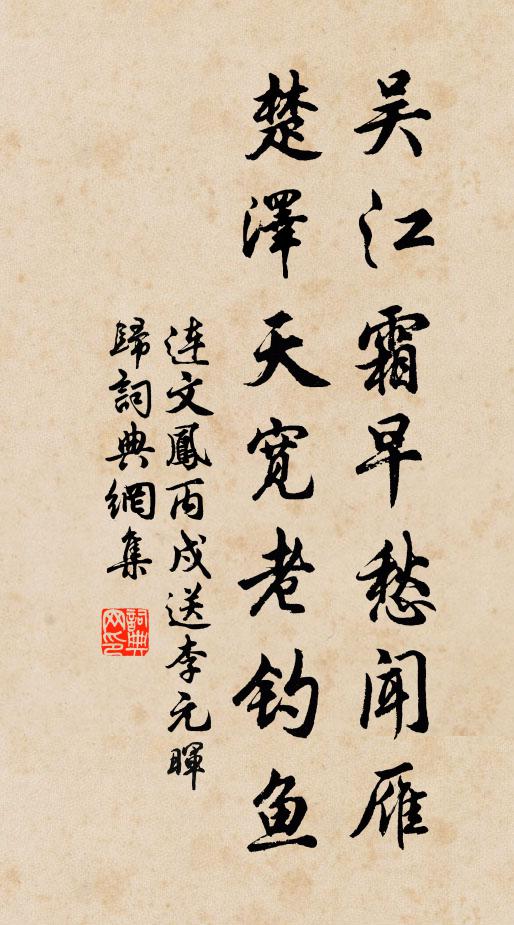 吴江霜早愁闻雁
楚泽天宽老钓鱼
连文鳳丙戌送李元暉
歸詞典網集
詞典网印